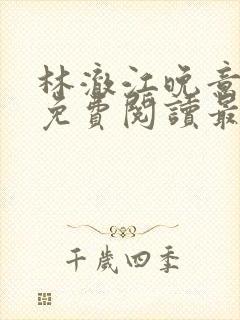 林澈江晚音
免費閱讀最
千歲四季